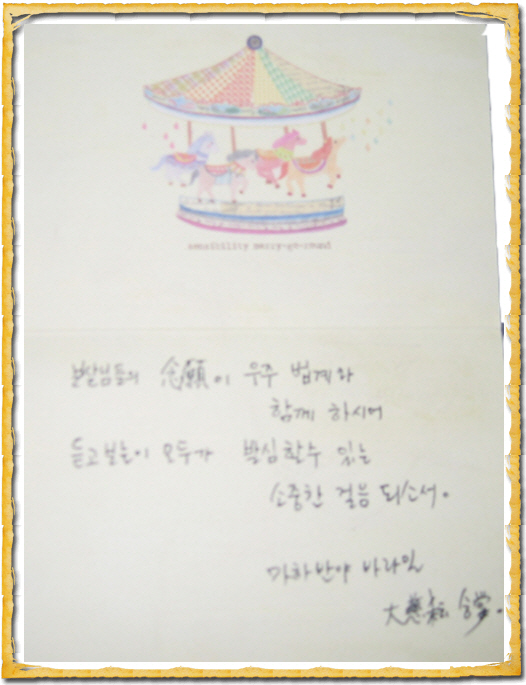 sensibility merry-go-round
보살님들의 念願이 우주 법계와
함께 하시어
듣고 보는이 모두가 발심할수 있는
소중한 걸음 되소서.
마하반야 바라밀
大 合掌.